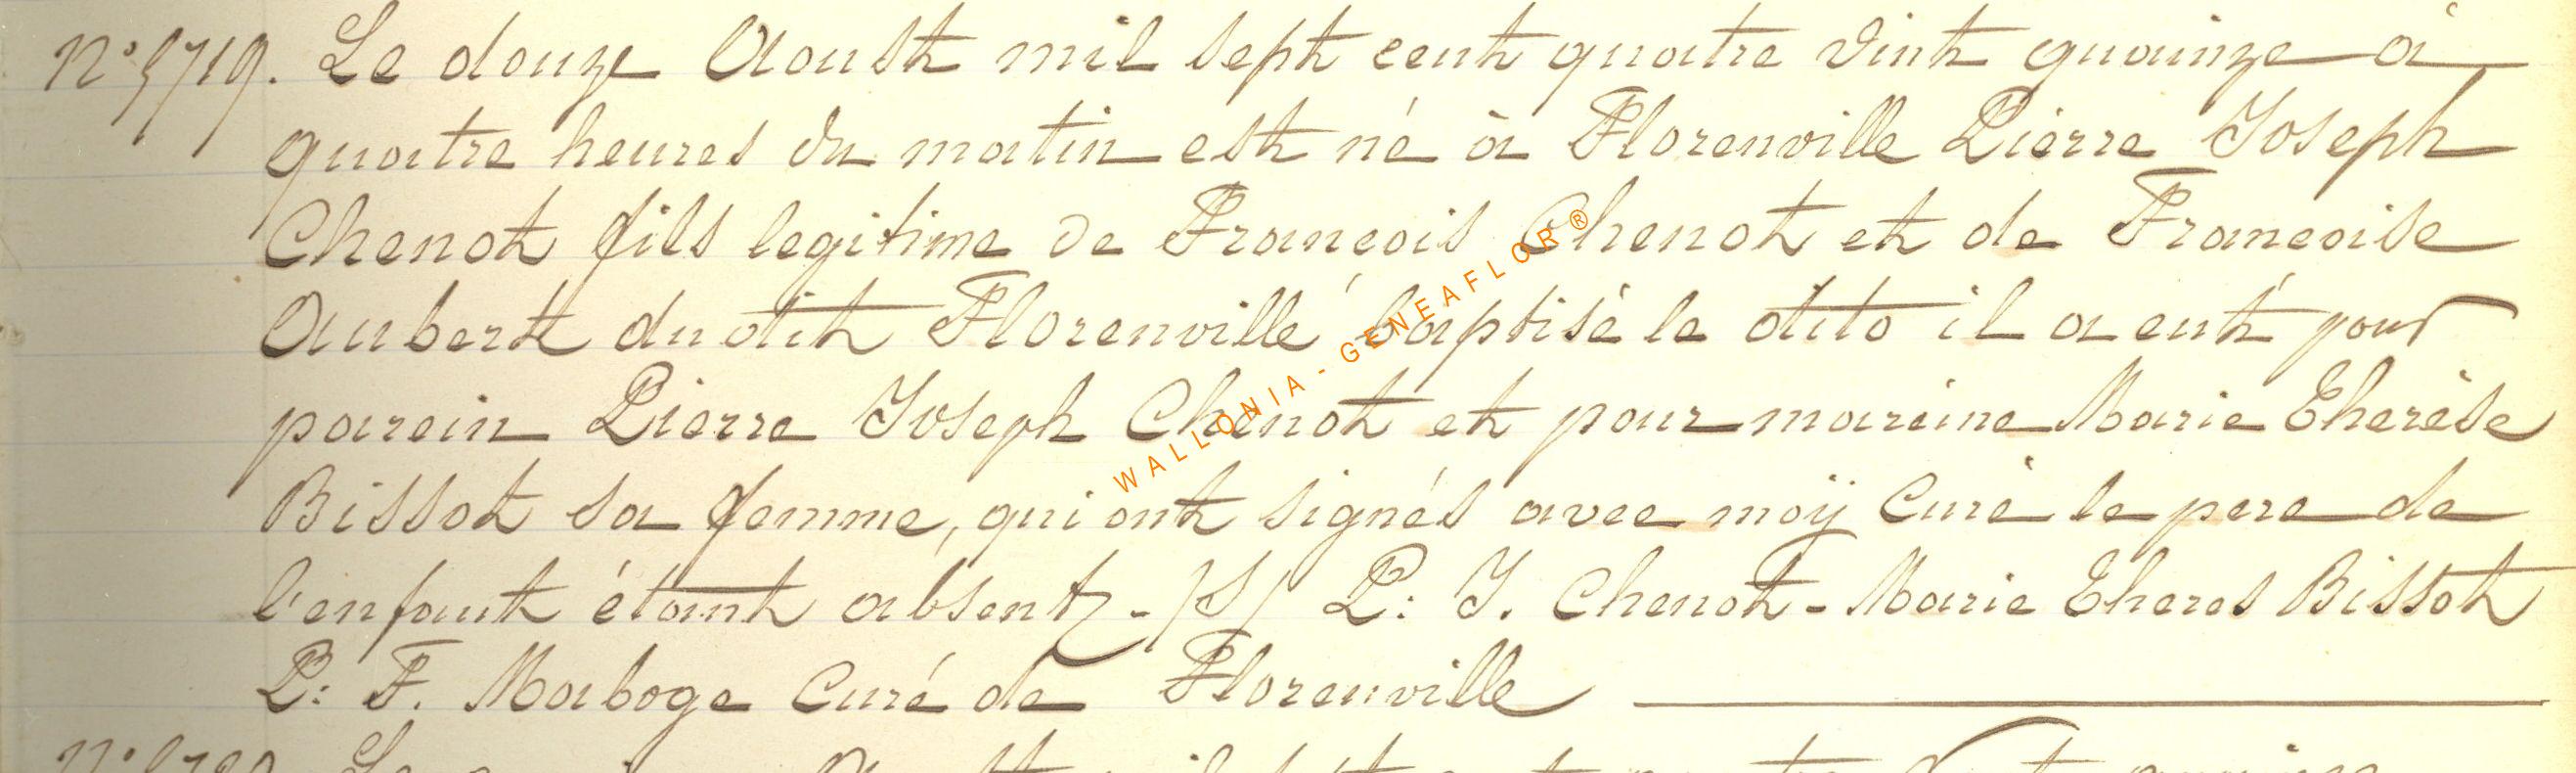 N° 5719. Le douze Aoust mil sept cent quatre vint quainze à
quatre heures du matin est né à Florenville Pierre Joseph
Chenot fils legitime de Francois Chenot et de Francoise
Aubert du dit Florenville baptisé le dito il a eut pour
parein Pierre Joseph Chenot et pour mareine Marie Therèse
Bissot sa femme, qui ont signés avec moÿ Curé le pere de
l'enfant étant absent. - /S/ P: J. Chenot - Marie Theres Bissot
P: F. Maboge Curé de Florenville
WALLONIA - GENEAFLOR®